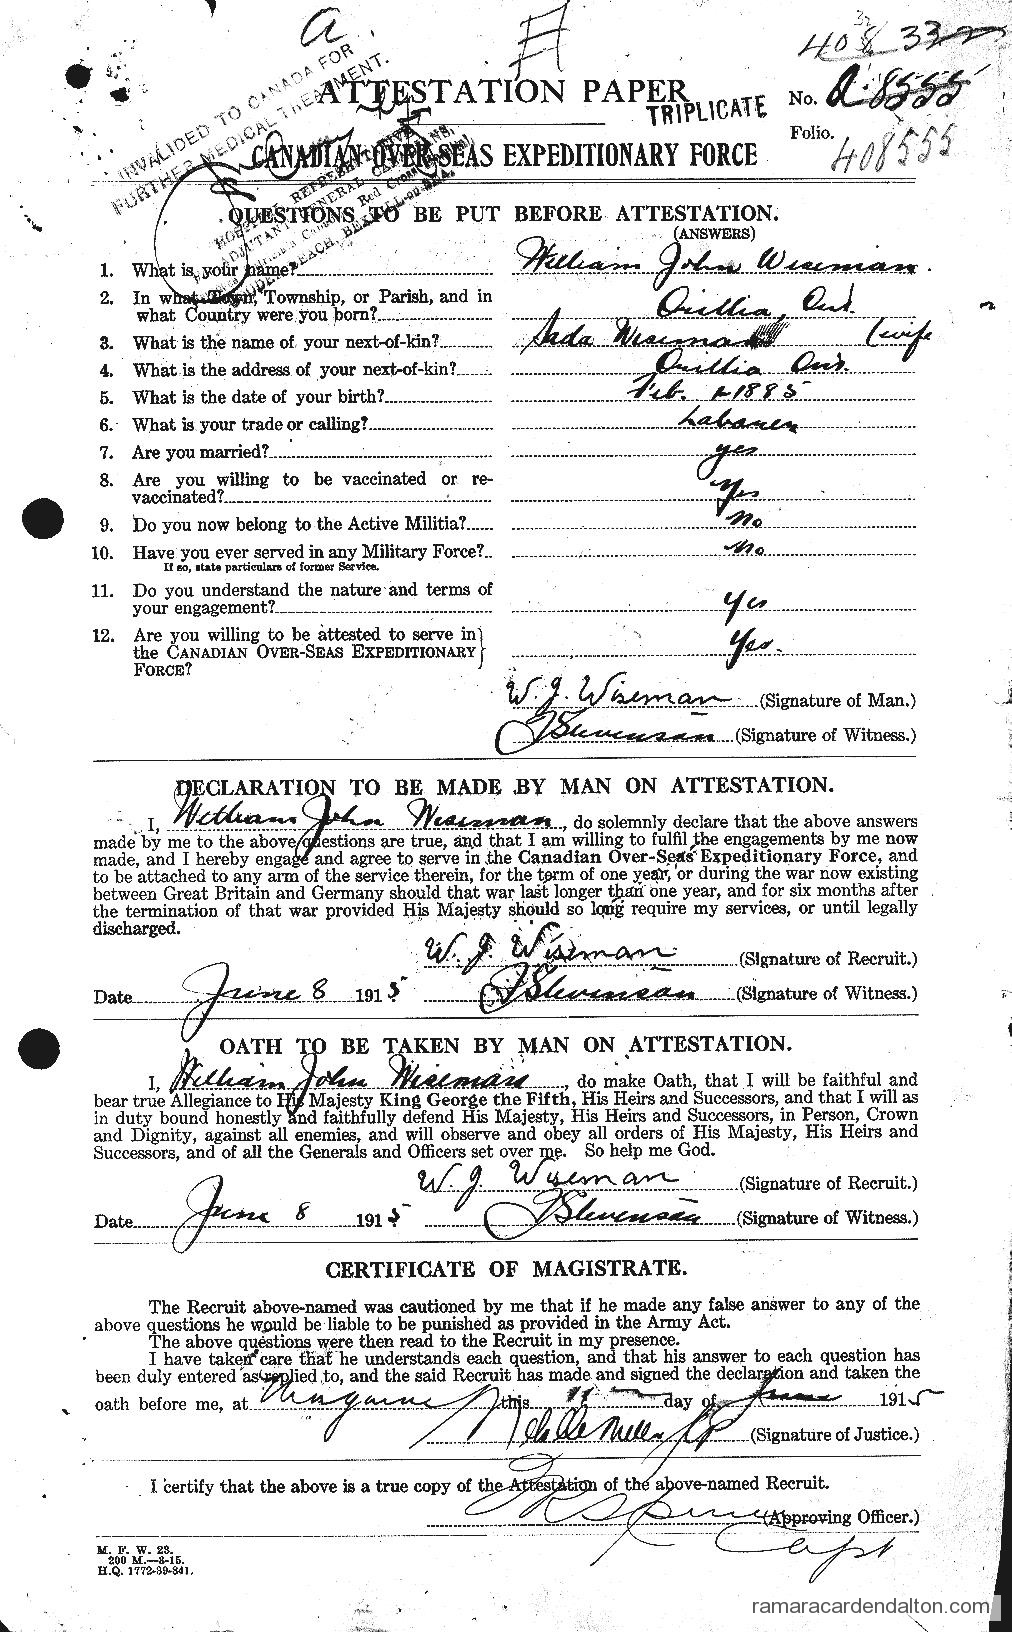 a
INVALIDED TO CANADA FOR
FURTHER MEDICAL TREATMENT.
ATTESTATION PAPER
TRIPLICATE
No. A 8555
Folio.
408555
CANADIAN OVER-SEAS EXPEDITIONARY FORCE
HOSPITAL REPRESENTATIVE
ADJUTANT GENERAL CANADIANS,
QUESTIONS TO BE PUT BEFORE ATTESTATION.
(ANSWERS)
1. What is your name? William John Wiseman.
2. In what Town, Township, or Parish, and in
what Country were you born? Orillia, Ont.
3. What is the name of your next-of-kin? Ada Wiseman (wife
4. What is the address of your next-of-kin? Orillia Ont.
5. What is the date of your birth? Feb. 1885
6. What is your trade or calling? Labourer
7. Are you married? yes
8. Are you willing to be vaccinated or re-
vaccinated? Yes
9. Do you now belong to the Active Militia? No
10. Have you ever served in any Military Force? No
If so, state particulars of former Service.
11. Do you understand the nature and terms of
your engagement? Yes
12. Are you willing to be attested to serve in
the CANADIAN OVER-SEAS EXPEDITIONARY
FORCE? Yes.
W. J. Wiseman (Signature of Man.)
J Stevenson (Signature of Witness.)
DECLARATION TO BE MADE BY MAN ON ATTESTATION.
I, William John Wiseman, do solemnly declare that the above answers
made by me to the above questions are true, and that I am willing to fulfil the engagements by me now
made, and I hereby engage and agree to serve in the Canadian Over-Seas Expeditionary Force, and
to be attached to any arm of the service therein, for the term of one year, or during the war now existing
between Great Britain and Germany should that war last longer than one year, and for six months after
the termination of that war provided His Majesty should so long require my services, or until legally
discharged.
W. J. Wiseman (Signature of Recruit.)
Date June 8 1915 J Stevenson (Signature of Witness.)
OATH TO BE TAKEN BY MAN ON ATTESTATION.
I, William John Wiseman, do make Oath, that I will be faithful and
bear true Allegiance to His Majesty King George the Fifth, His Heirs and Successors, and that I will as
in duty bound honestly and faithfully defend His Majesty, His Heirs and Successors, in Person, Crown
and Dignity, against all enemies, and will observe and obey all orders of His Majesty, His Heirs and
Successors, and of all the Generals and Officers set over me. So help me God.
W. J. Wiseman (Signature of Recruit.)
Date June 8 1915 J Stevenson (Signature of Witness.)
CERTIFICATE OF MAGISTRATE.
The Recruit above-named was cautioned by me that if he made any false answer to any of the
above questions he would be liable to be punished as provided in the Army Act.
The above questions were then read to the Recruit in my presence.
I have taken care that he understands each question, and that his answer to each question has
been duly entered as replied to, and the said Recruit has made and signed the declaration and taken the
oath before me, at Niagara this 11 day of June 1915
(Signature of Justice.)
I certify that the above is a true copy of the Attestation of the above-named Recruit.
(Approving Officer.)
Capt
M. F. W. 23.
200 M.—3-15.
H.Q. 1772-39-841.
ramaracardendalton.com